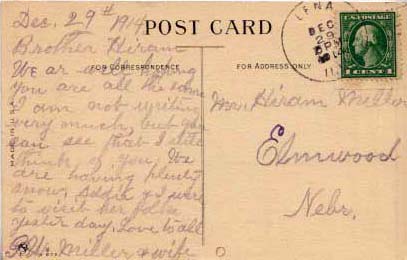 Dec. 29th 1914
POST CARD
Brother Hiram
FOR CORRESPONDENCE
FOR ADDRESS ONLY
We ar well hoping
you are all the same
I am not writing
very much, but you
can see that I still
think of you. We
are having plenty
snow, Addie & I were
to visit her folks
yester day. Love to all
Miller & wife
MADE IN U.S.A.
LENA
DEC
29
PM
ILL
U.S. POSTAGE
1 CENT 1
Hiram Miller
Elmwood
Nebr.